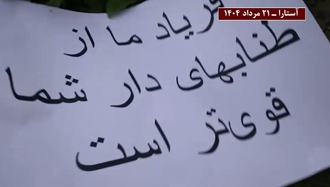 آستارا ــ ۲۱ مرداد ۱۴۰۴
فریاد ما از
طنابهای دار شما
قوی‌تر است